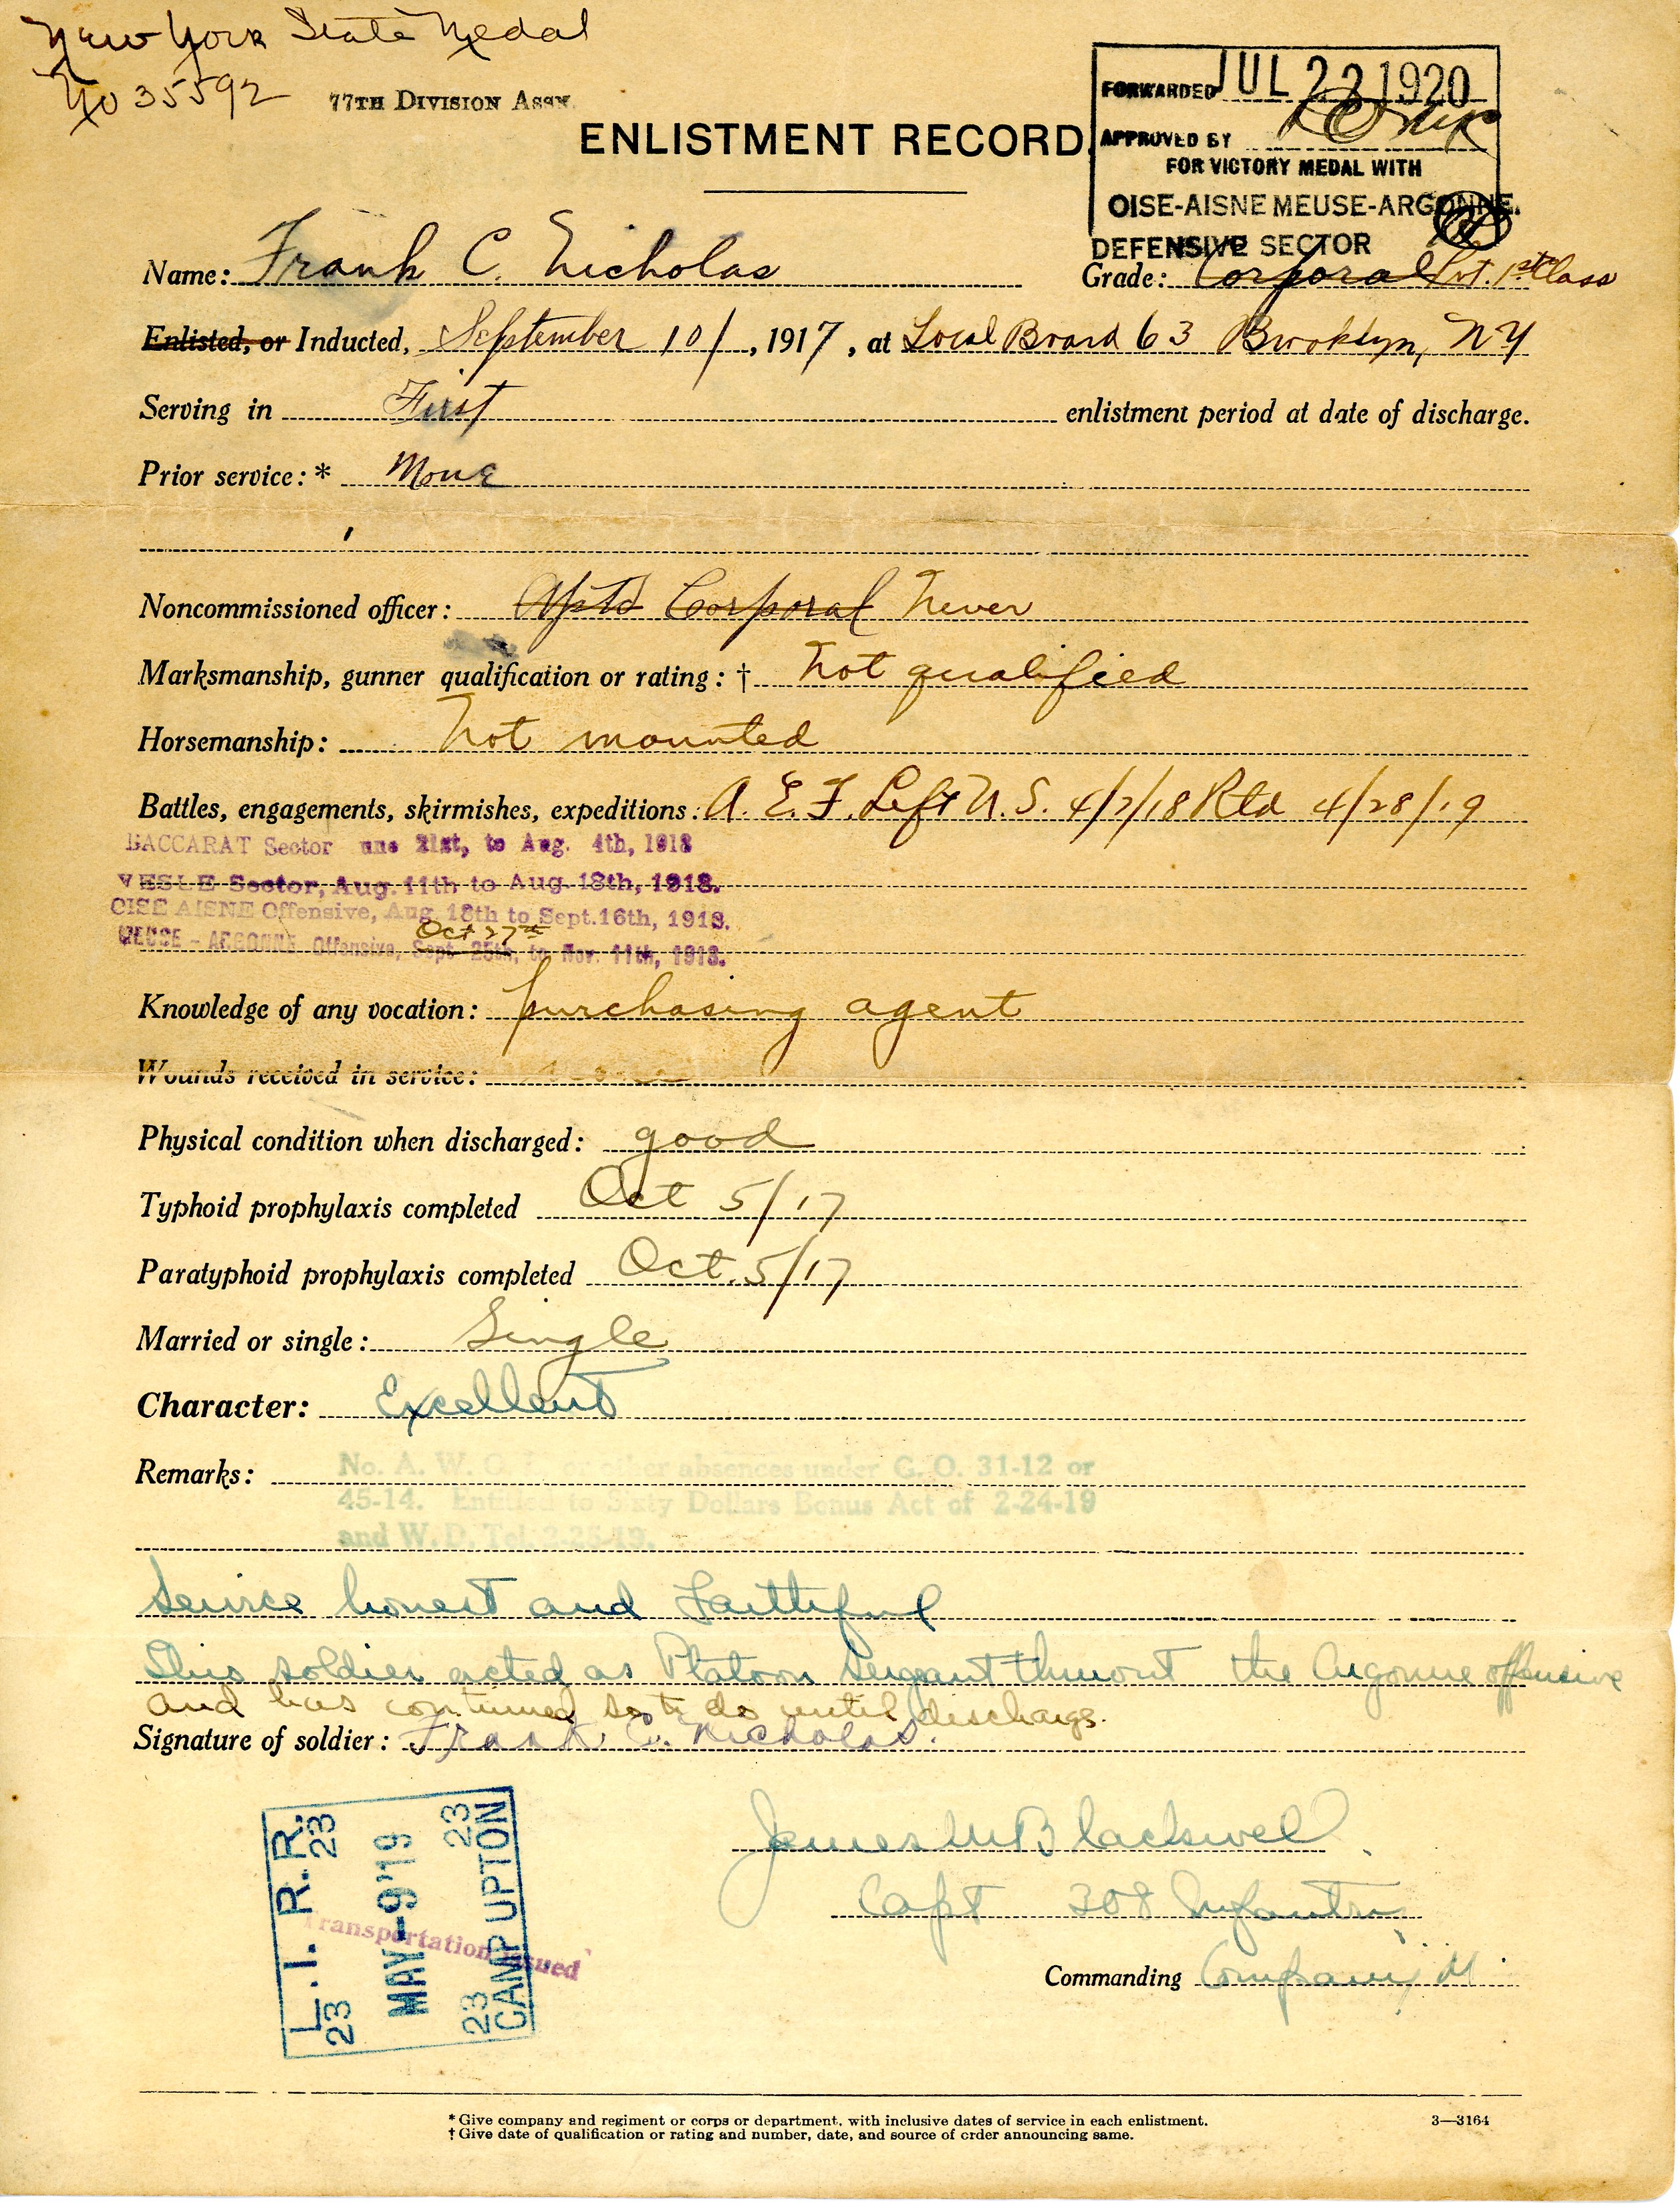 New York State Medal
No 35592
77TH DIVISION ASSN.
FORWARDED JUL 22 1920
APPROVED BY
FOR VICTORY MEDAL WITH
OISE-AISNE MEUSE-ARGONNE.
DEFENSIVE SECTOR
ENLISTMENT RECORD.
Name: Frank C. Nicholas Grade: Corporal Pvt. 1st Class
Enlisted, or Inducted, September 10/, 1917, at Local Board 63 Brooklyn, NY
Serving in First enlistment period at date of discharge.
Prior service:* None
Noncommissioned officer: Aptd Corporal Never
Marksmanship, gunner qualification or rating:† Not qualified
Horsemanship: Not mounted
Battles, engagements, skirmishes, expeditions: A. E. F. Left U.S. 4/2/18 Rtd 4/28/19
BACCARAT Sector une 21st, to Aug. 4th, 1918
VESLE Sector, Aug. 11th to Aug. 18th, 1918.
OISE AISNE Offensive, Aug 18th to Sept. 16th, 1918.
Oct 27th
MEUSE - ARGONNE Offensive, Sept 25th, to Nov. 11th, 1918.
Knowledge of any vocation: purchasing agent
Wounds received in service:
Physical condition when discharged: good
Typhoid prophylaxis completed Oct 5/17
Paratyphoid prophylaxis completed Oct. 5/17
Married or single: Single
Character: Excellent
Remarks: No. A. W. O. L. or other absences under G. O. 31-12 or
45-14. Entitled to Sixty Dollars Bonus Act of 2-24-19
and W. D. Tel 2-25-19.
Service honest and Faithful
This soldier acted as Platoon Sergeant thruout the Argonne offensive
and has continued so to do until discharge.
Signature of soldier: Frank C. Nicholas.
James M Blackwell
Capt 308 Infantry
Commanding Company M
L. I. R. R.
23 23
MAY-9'19
23 23
CAMP UPTON
Transportation issued
* Give company and regiment or corps or department, with inclusive dates of service in each enlistment.
† Give date of qualification or rating and number, date, and source of order announcing same.
3—3164